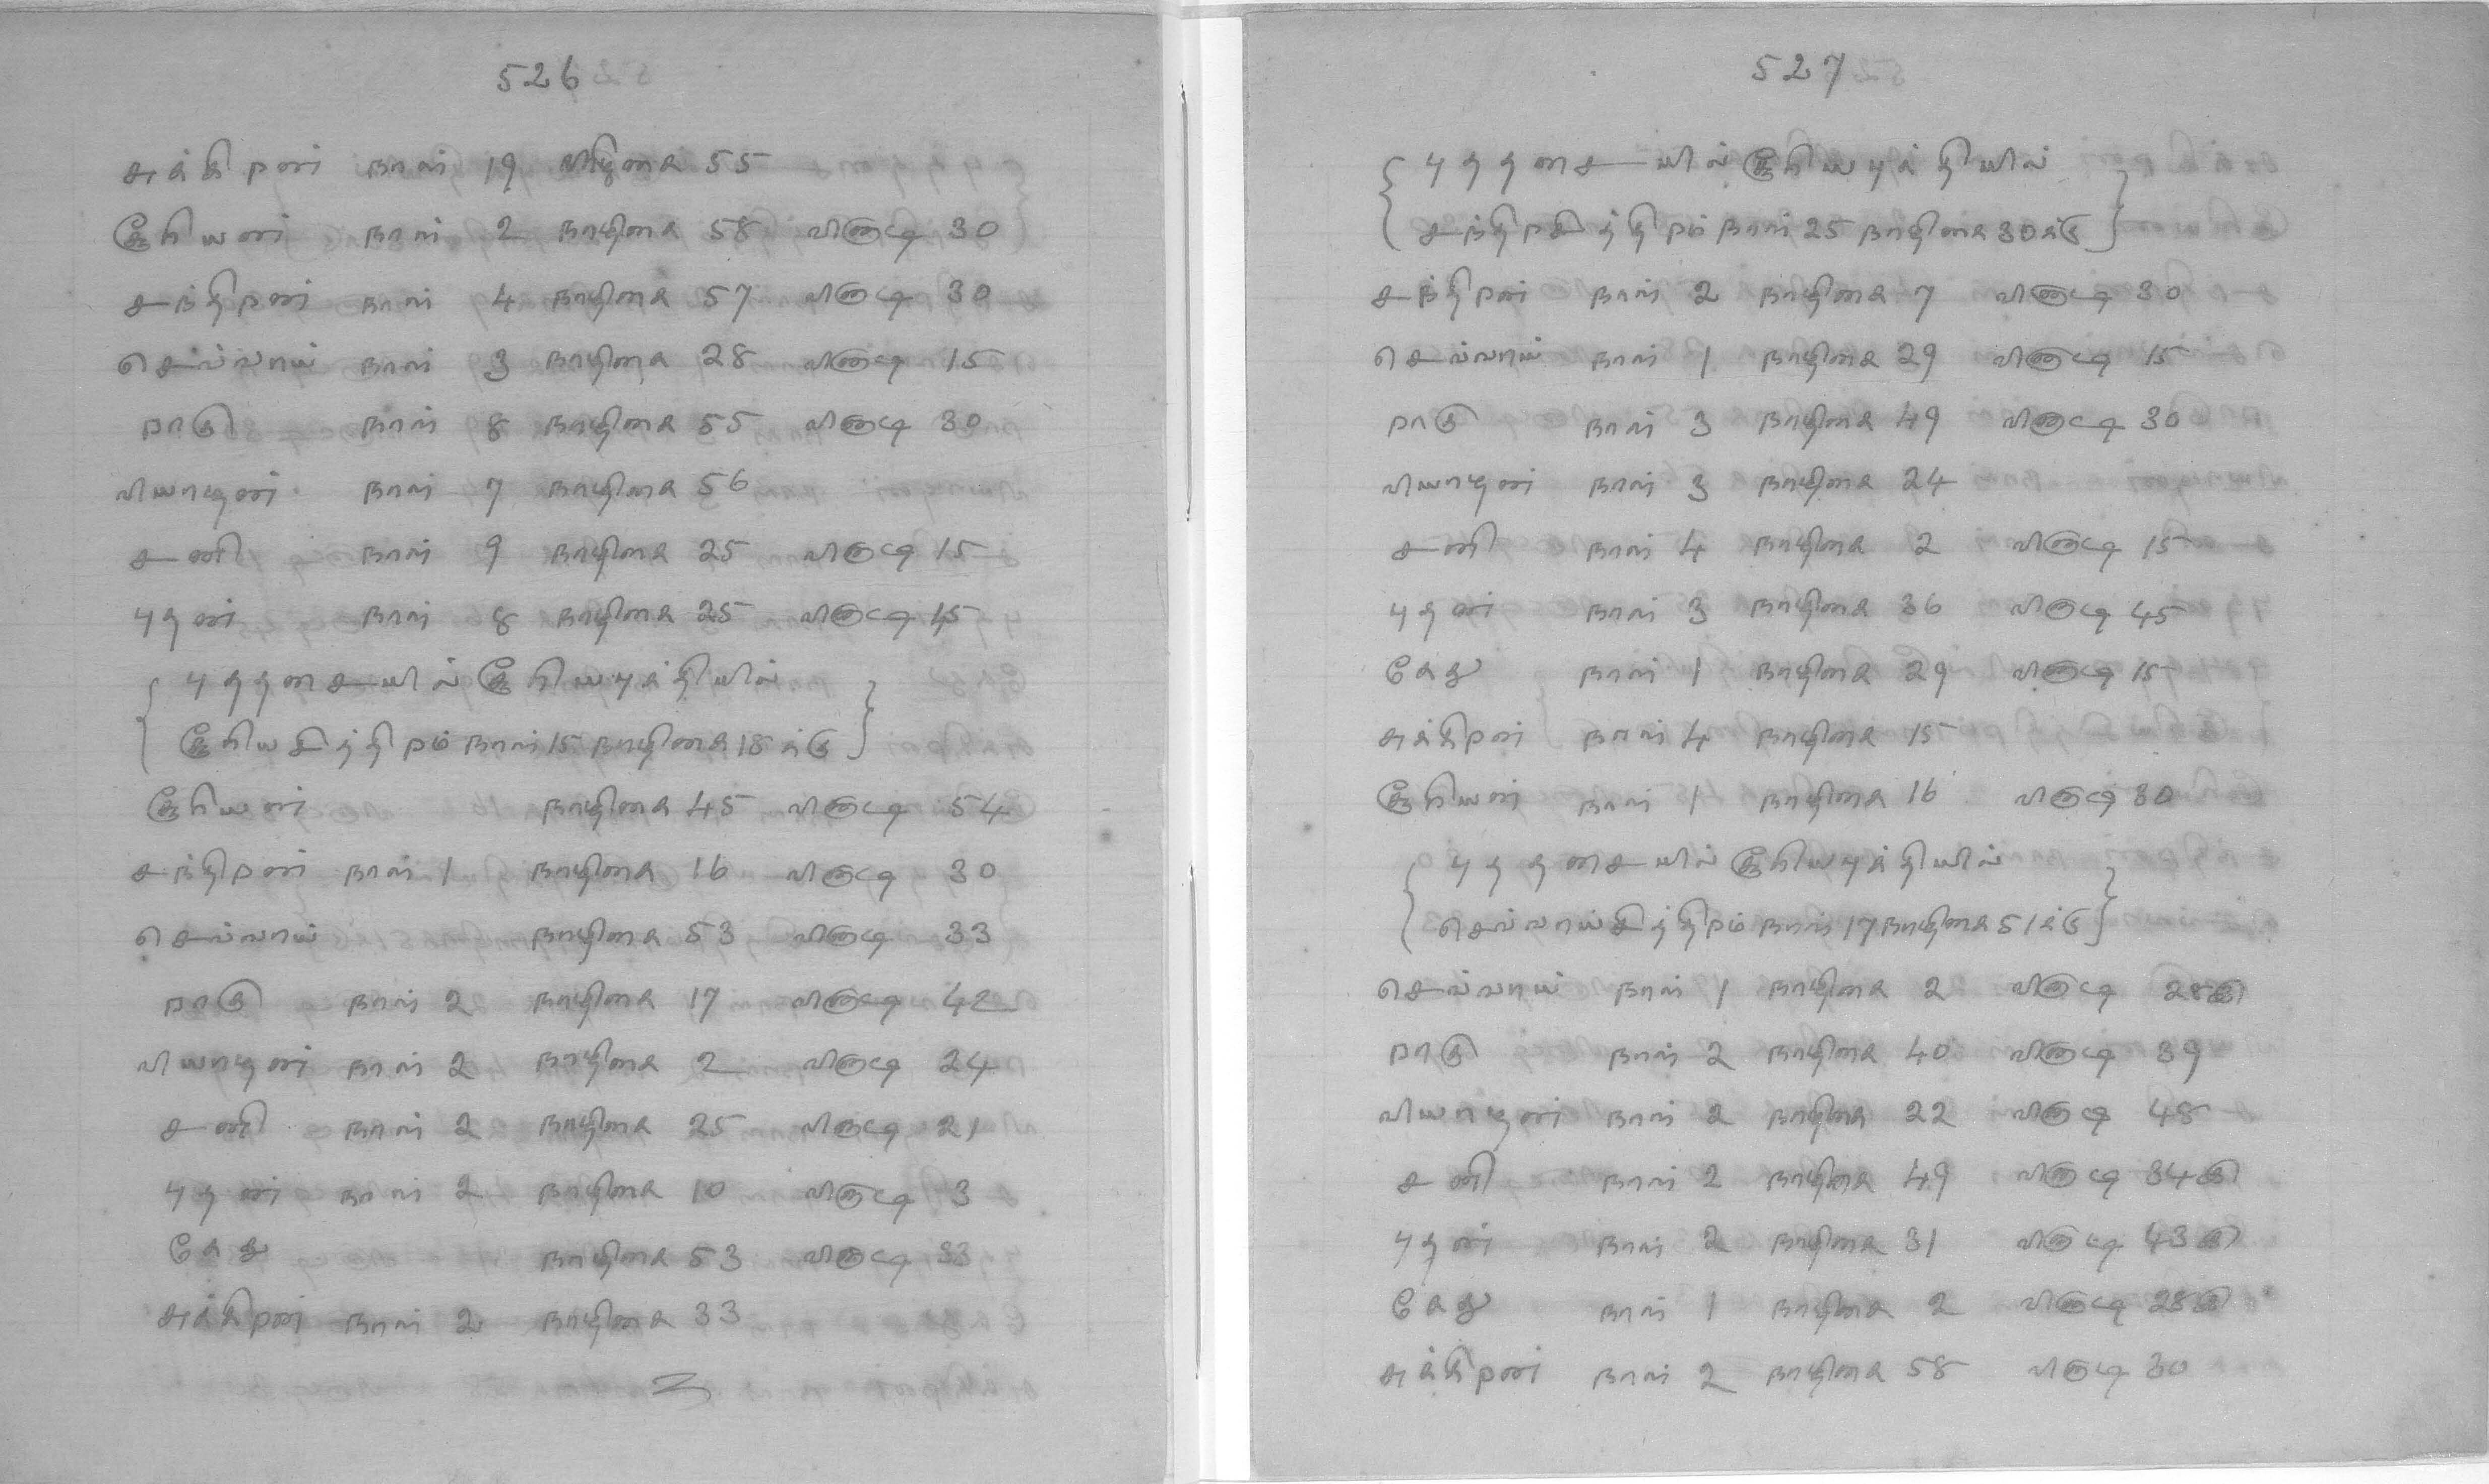 526
சுக்கிரன் நாள் 19 நாழிகை 55
சூரியன் நாள் 2 நாழிகை 58 விநாடி 30
சந்திரன் நாள் 4 நாழிகை 57 விநாடி 30
செவ்வாய் நாள் 3 நாழிகை 28 விநாடி 15
ராகு நாள் 8 நாழிகை 55 விநாடி 30
வியாழன் நாள் 7 நாழிகை 56
சனி நாள் 9 நாழிகை 25 விநாடி 15
புதன் நாள் 8 நாழிகை 25 விநாடி 15
புததசையில் சூரியபுக்தியில்
சூரியசித்திரம் நாள் 15 நாழிகை 18 க்கு
சூரியன் நாழிகை 45 விநாடி 54
சந்திரன் நாள் 1 நாழிகை 16 விநாடி 30
செவ்வாய் நாழிகை 53 விநாடி 33
ராகு நாள் 2 நாழிகை 17 விநாடி 42
வியாழன் நாள் 2 நாழிகை 2 விநாடி 24
சனி நாள் 2 நாழிகை 25 விநாடி 21
புதன் நாள் 2 நாழிகை 10 விநாடி 3
கேது நாழிகை 53 விநாடி 33
சுக்கிரன் நாள் 2 நாழிகை 33
527
புததசையில் சூரியபுக்தியில்
சந்திரசித்திரம் நாள் 25 நாழிகை 30க்கு
சந்திரன் நாள் 2 நாழிகை 7 விநாடி 30
செவ்வாய் நாள் 1 நாழிகை 29 விநாடி 15
ராகு நாள் 3 நாழிகை 49 விநாடி 30
வியாழன் நாள் 3 நாழிகை 24
சனி நாள் 4 நாழிகை 2 விநாடி 15
புதன் நாள் 3 நாழிகை 36 விநாடி 45
கேது நாள் 1 நாழிகை 29 விநாடி 15
சுக்கிரன் நாள் 4 நாழிகை 15
சூரியன் நாள் 1 நாழிகை 16 விநாடி 30
புததசையில் சூரியபுக்தியில்
செவ்வாய்சித்திரம் நாள் 17 நாழிகை 51க்கு
செவ்வாய் நாள் 1 நாழிகை 2 விநாடி 28
ராகு நாள் 2 நாழிகை 40 விநாடி 39
வியாழன் நாள் 2 நாழிகை 22 விநாடி 48
சனி நாள் 2 நாழிகை 49 விநாடி 34
புதன் நாள் 2 நாழிகை 31 விநாடி 43
கேது நாள் 1 நாழிகை 2 விநாடி 28
சுக்கிரன் நாள் 2 நாழிகை 58 விநாடி 30